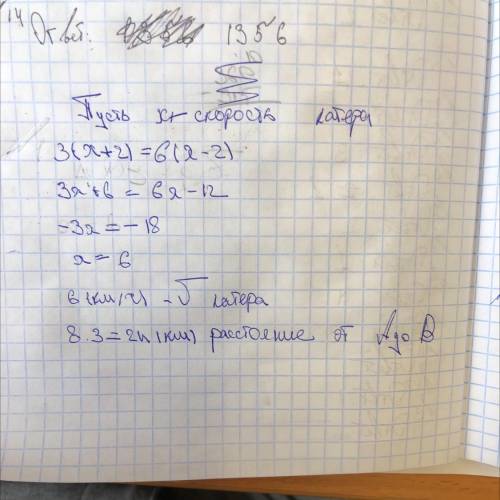 14
Ответ: 1356
Пусть x - скорость катера
3(x+2)=6(x-2)
3x+6=6x-12
-3x=-18
x=6
6 (км/ч) - V катера
8·3=24 (км) расстояние от A до B